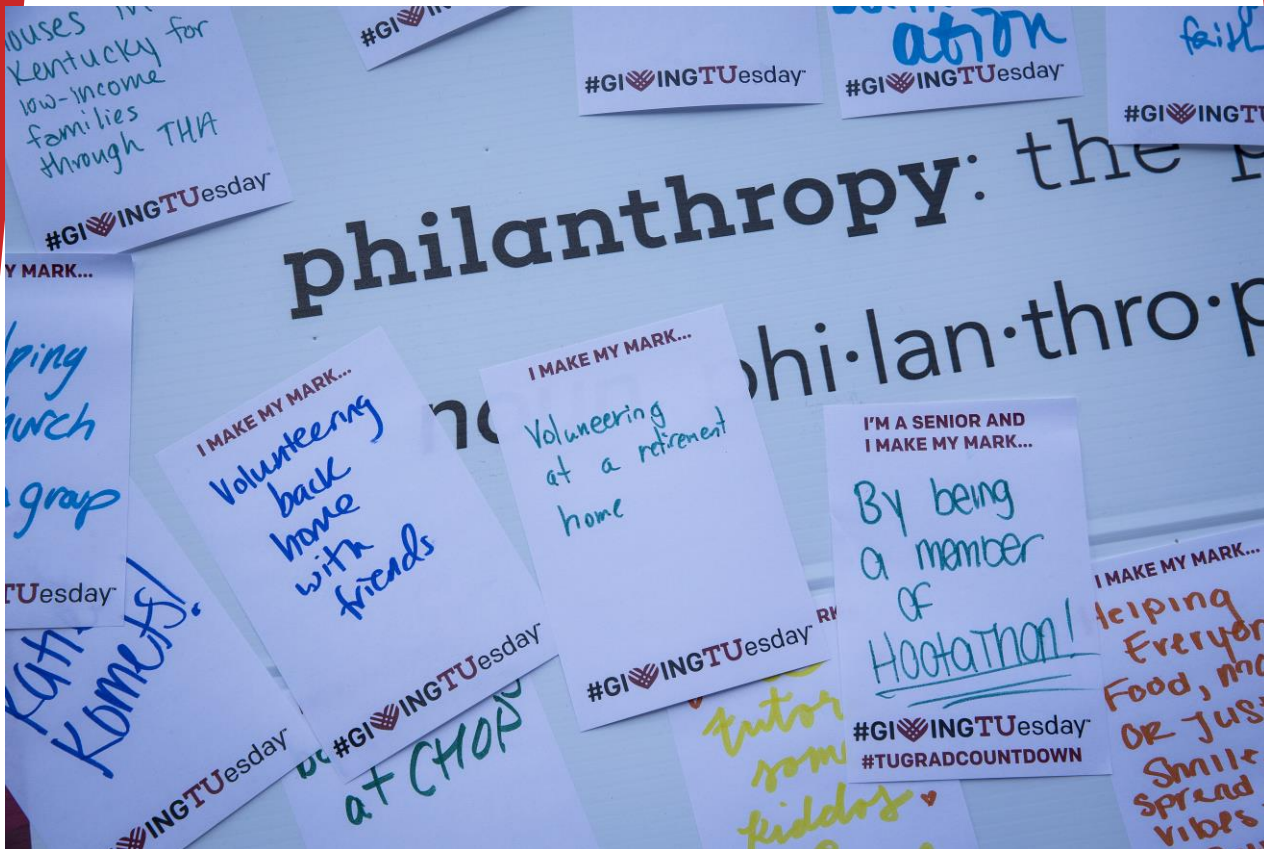 ouses in
Kentucky for
low-income
families
through THA
#GIVINGTUesday
#GIV
#GIVINGTUesday
ation
#GIVINGTUesday
faith
#GIVINGTU
philanthropy: the p
phi·lan·thro·p
Y MARK...
lping
hurch
group
TUesday
Komets!
VINGTUesday
I MAKE MY MARK...
Volunteering
back
home
with
friends
#GIVINGTUesday
at CHOP
I MAKE MY MARK...
Voluneering
at a retirement
home
#GIVINGTUesday
RK
tutor
som
kiddos
I'M A SENIOR AND
I MAKE MY MARK...
By being
a member
of
HootaThon!
#GIVINGTUesday
#TUGRADCOUNTDOWN
I MAKE MY MARK...
Helping
Everyon
Food, mo
OR Just
Smile
Spread
vibes